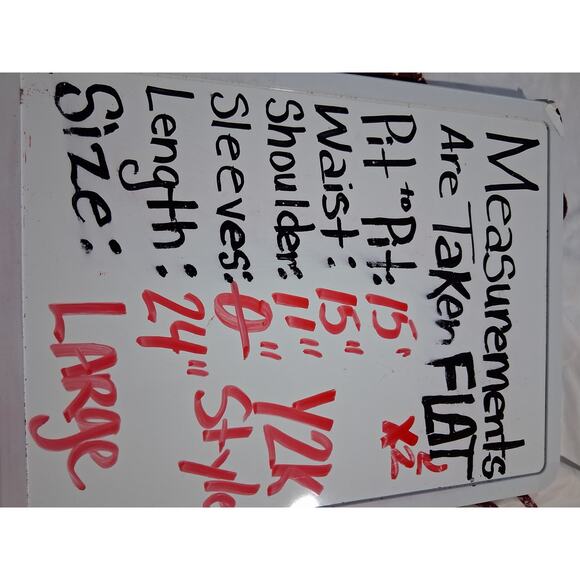 Measurements
Are Taken FLAT
Pit to Pit: 15" x2
Waist: 15"
Shoulder: 11"
Sleeves: 0" Y2K
Length: 24" Style
Size: LARGE